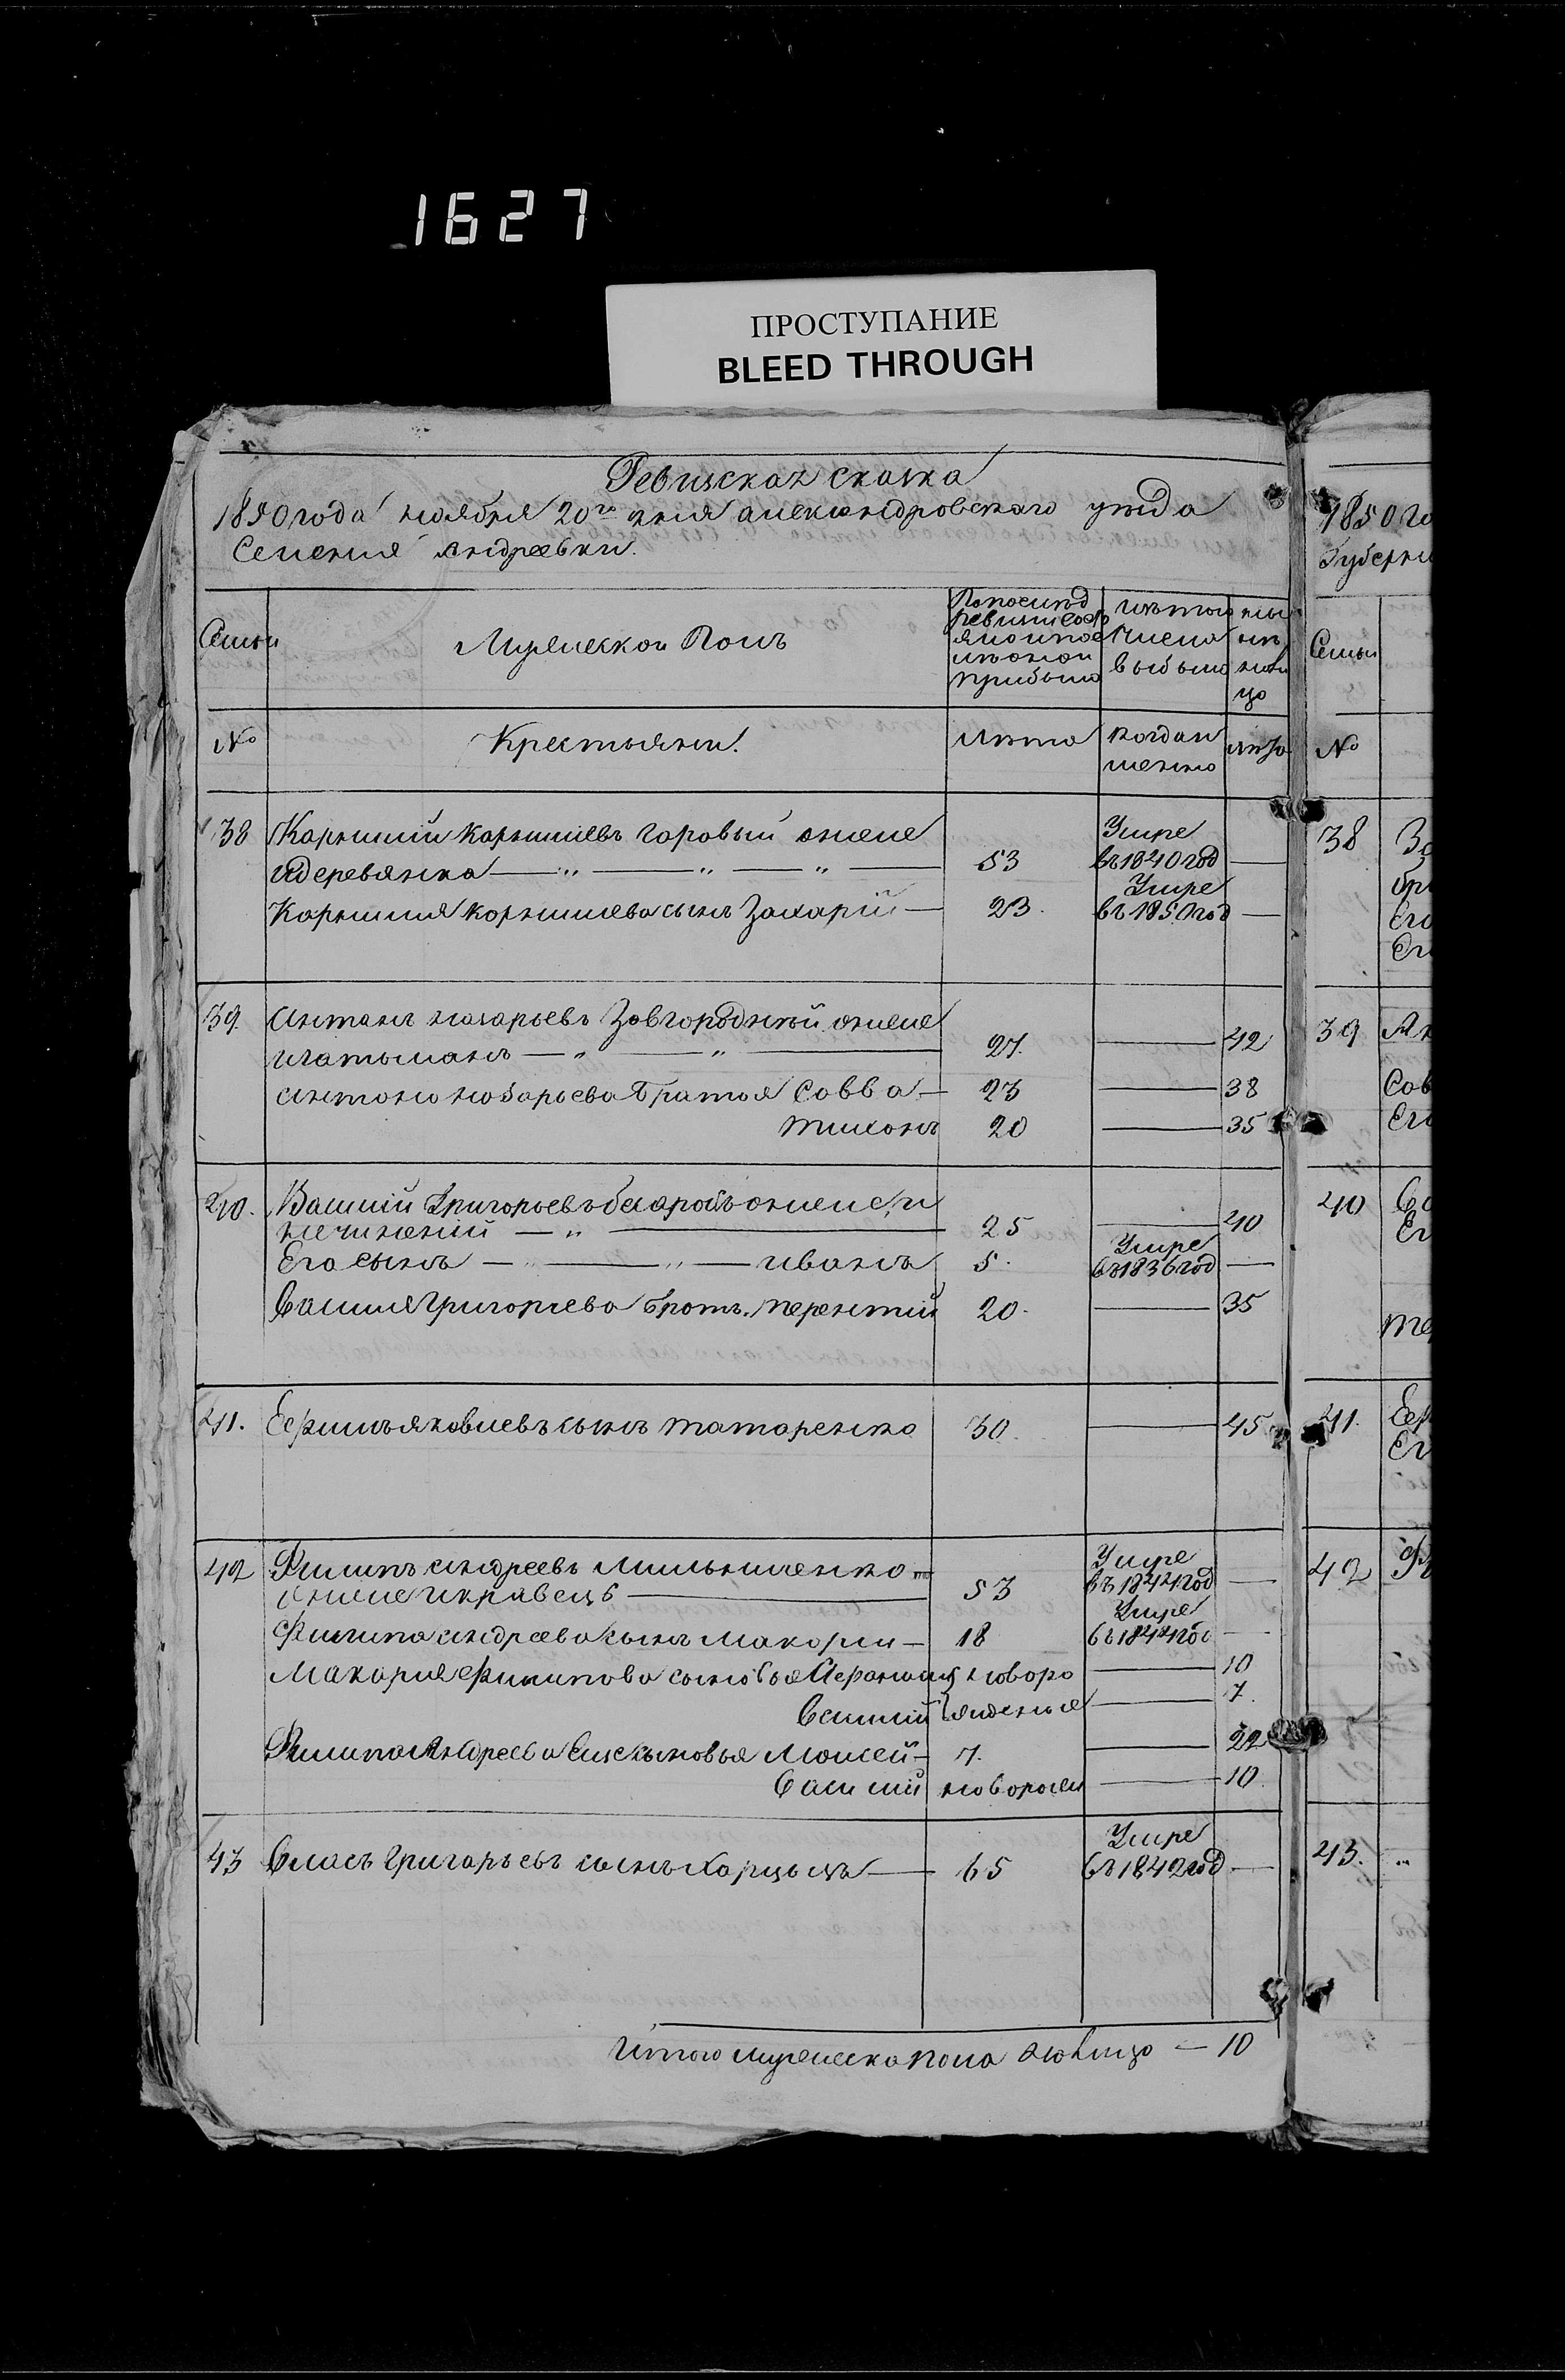 1627
ПРОСТУПАНИЕ
BLEED THROUGH
Ревизская сказка
1850 года ноября 20го дня александровского уезда
Селения Андреевки.
Семьи
Мужескои Полъ
По послед
ревизии состо
яло и после
оной
прибыло
Изъ того
числа
выбыло
ны
не
на ли
цо
№
Крестьяне.
лета
когда и
менно
лета
38
Корнилий Корнилиевъ Горовый онже
и деревянко — „ — „ — „ —
53
Умре
въ 1840 год
—
Корнилия Корнилиева сынъ Захарий —
23.
Умре
въ 1850 год
—
39.
Антонъ Назарьевъ Завгородний онже
— „ — „ —
27.
— 42
Антона Назарьева Братья Савва —
23
— 38
Тихонъ
20
— 35
40.
Василий Григорьевъ онже и
— „ —
25
— 40
Его сынъ — „ — „ — иванъ
5.
Умре
въ 1836 год
—
Василия Григорьева братъ терентий
20.
— 35
41.
Ефимъ яковлевъ сынъ татаренко
30.
— 45
42
Филипъ Андреевъ Мильниченко
онже и кравецъ —
53
Умре
въ 1844 год
—
Филипа Андреева сынъ Макарий —
18
Умре
въ 1844 год
—
Макария Филипова сыновья Афанасий
новоро
— 10
Василий
жденые
— 7.
Филипа Андреева еще сыновья Моисей —
7.
— 22
Василий
новорожден
— 10
43
Власъ Григорьевъ сынъ Харцызъ —
65
Умре
въ 1842 год
—
Итого мужеска пола налицо — 10
1850 го
Губерни
Семьи
№
38
39
40
41.
42
43.